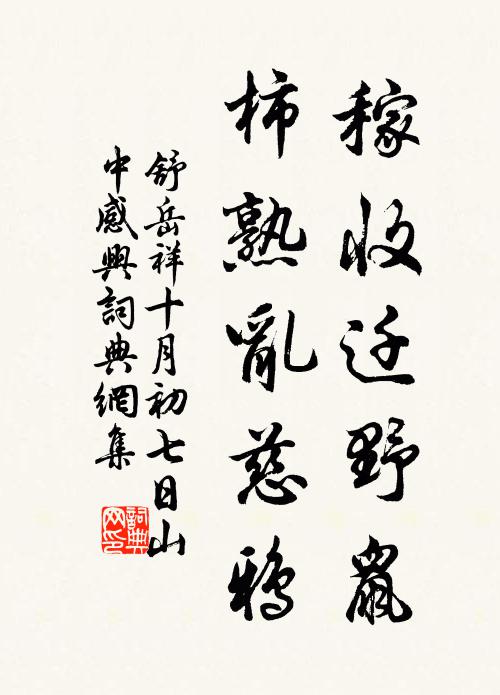 稼收迁野鼠
柿熟亂慈鴉
舒岳祥十月初七日山
中感興詞典網集
詞典网印